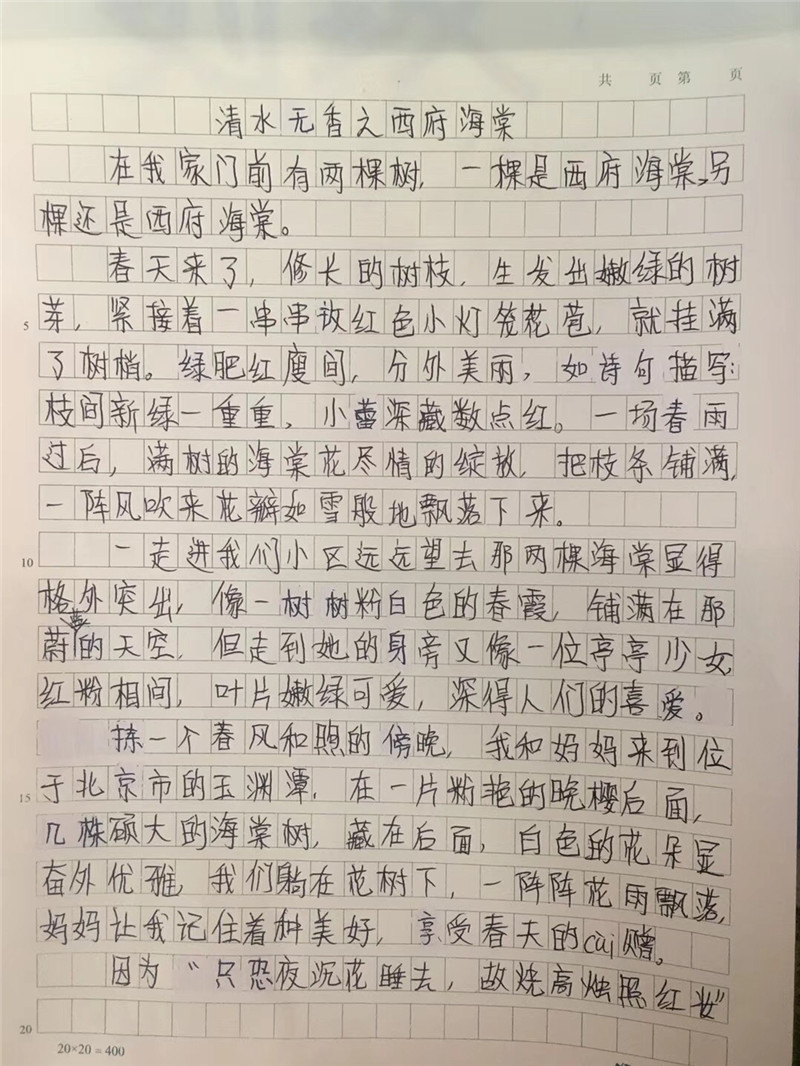 共 页 第 页
清水无香之西府海棠
在我家门前有两棵树，一棵是西府海棠，另
棵还是西府海棠。
春天来了，修长的树枝，生发出嫩绿的树
5 芽，紧接着一串串红色小灯笼花苞，就挂满
了树梢。绿肥红廋间，分外美丽，如诗句描写：
枝间新绿一重重，小蕾深藏数点红。一场春雨
过后，满树的海棠花尽情的绽放，把枝条铺满，
一阵风吹来花瓣如雪般地飘落下来。
10 一走进我们小区远远望去那两棵海棠显得
格外突出，像一树树粉白色的春霞，铺满在那
蔚蓝的天空，但走到她的身旁又像一位亭亭少女，
红粉相间，叶片嫩绿可爱，深得人们的喜爱。
拣一个春风和煦的傍晚，我和妈妈来到位
15 于北京市的玉渊潭，在一片粉艳的晚樱后面，
几株硕大的海棠树，藏在后面，白色的花朵显
奋外优雅，我们躺在花树下，一阵阵花雨飘落，
妈妈让我记住着种美好，享受春天的cì赠。
因为“只恐夜沉花睡去，故烧高烛照红妆”
20
20×20=400